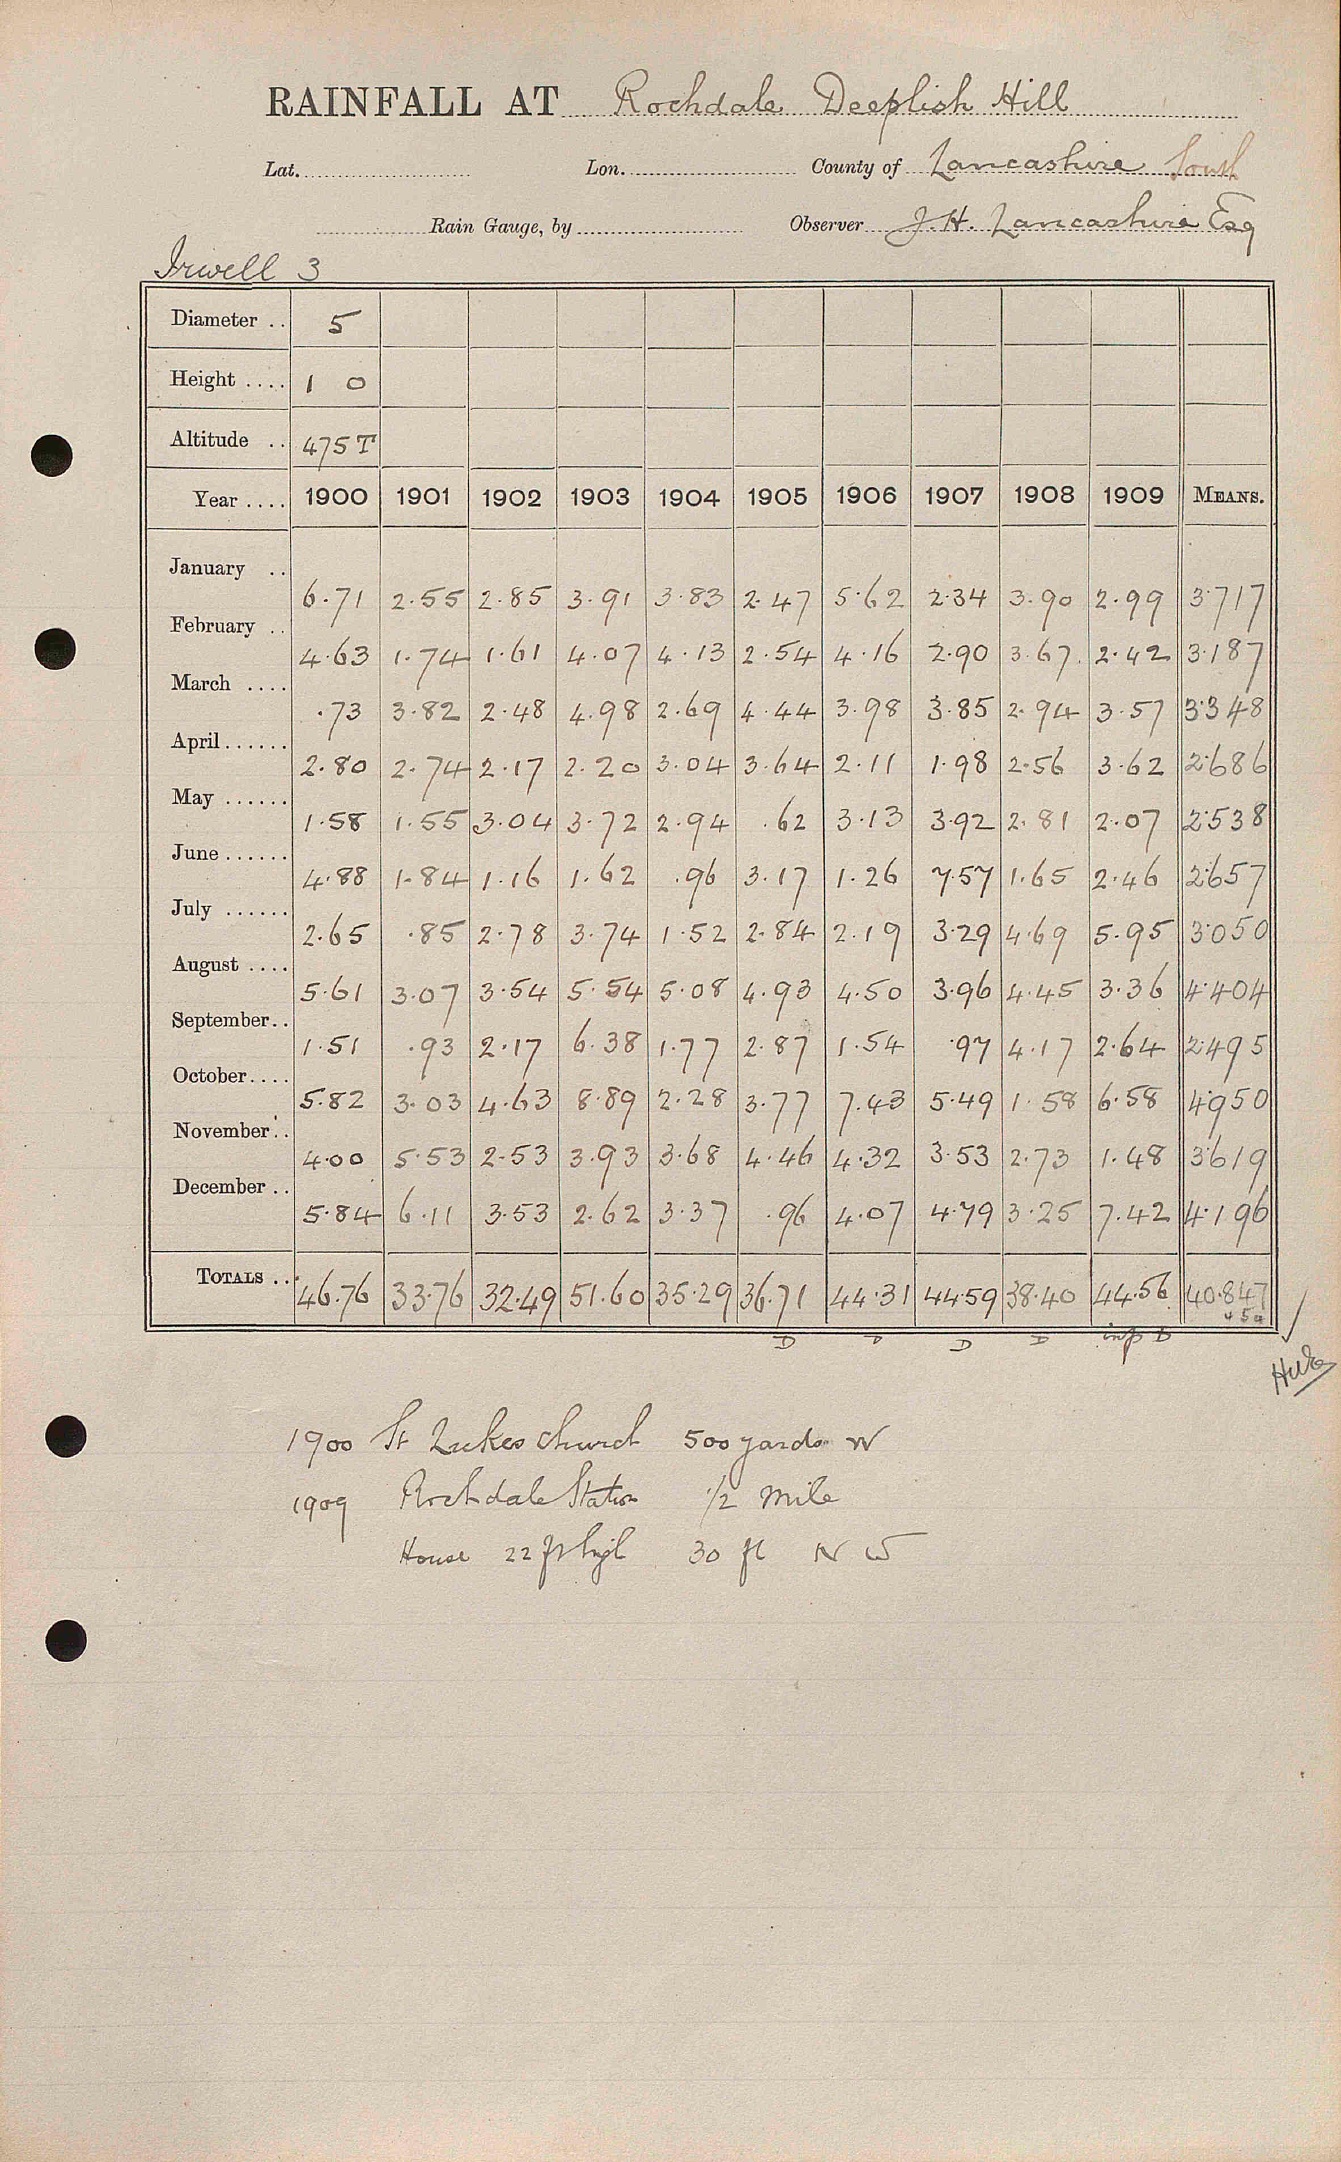 RAINFALL AT Rochdale Deeplish Hill
Lat. Lon. County of Lancashire South
Rain Gauge, by Observer J. H. Lancashire Esq
Irwell 3
Diameter .. 5
Height .... 1 0
Altitude .. 475 T
Year .... 1900 1901 1902 1903 1904 1905 1906 1907 1908 1909 MEANS.
January .. 6.71 2.55 2.85 3.91 3.83 2.47 5.62 2.34 3.90 2.99 3.717
February .. 4.63 1.74 1.61 4.07 4.13 2.54 4.16 2.90 3.67 2.42 3.187
March .... .73 3.82 2.48 4.98 2.69 4.44 3.98 3.85 2.94 3.57 3.348
April ...... 2.80 2.74 2.17 2.20 3.04 3.64 2.11 1.98 2.56 3.62 2.686
May ...... 1.58 1.55 3.04 3.72 2.94 .62 3.13 3.92 2.81 2.07 2.538
June ...... 4.88 1.84 1.16 1.62 .96 3.17 1.26 7.57 1.65 2.46 2.657
July ...... 2.65 .85 2.78 3.74 1.52 2.84 2.19 3.29 4.69 5.95 3.050
August .... 5.61 3.07 3.54 5.54 5.08 4.93 4.50 3.96 4.45 3.36 4.404
September.. 1.51 .93 2.17 6.38 1.77 2.87 1.54 .97 4.17 2.64 2.495
October.... 5.82 3.03 4.63 8.89 2.28 3.77 7.43 5.49 1.58 6.58 4.950
November.. 4.00 5.53 2.53 3.93 3.68 4.46 4.32 3.53 2.73 1.48 3.619
December .. 5.84 6.11 3.53 2.62 3.37 .96 4.07 4.79 3.25 7.42 4.196
TOTALS .. 46.76 33.76 32.49 51.60 35.29 36.71 44.31 44.59 38.40 44.56 40.847
D D D D inp D
1900 St Lukes Church 500 yards W
1909 Rochdale Station 1/2 mile
House 22 ft high 30 ft N W